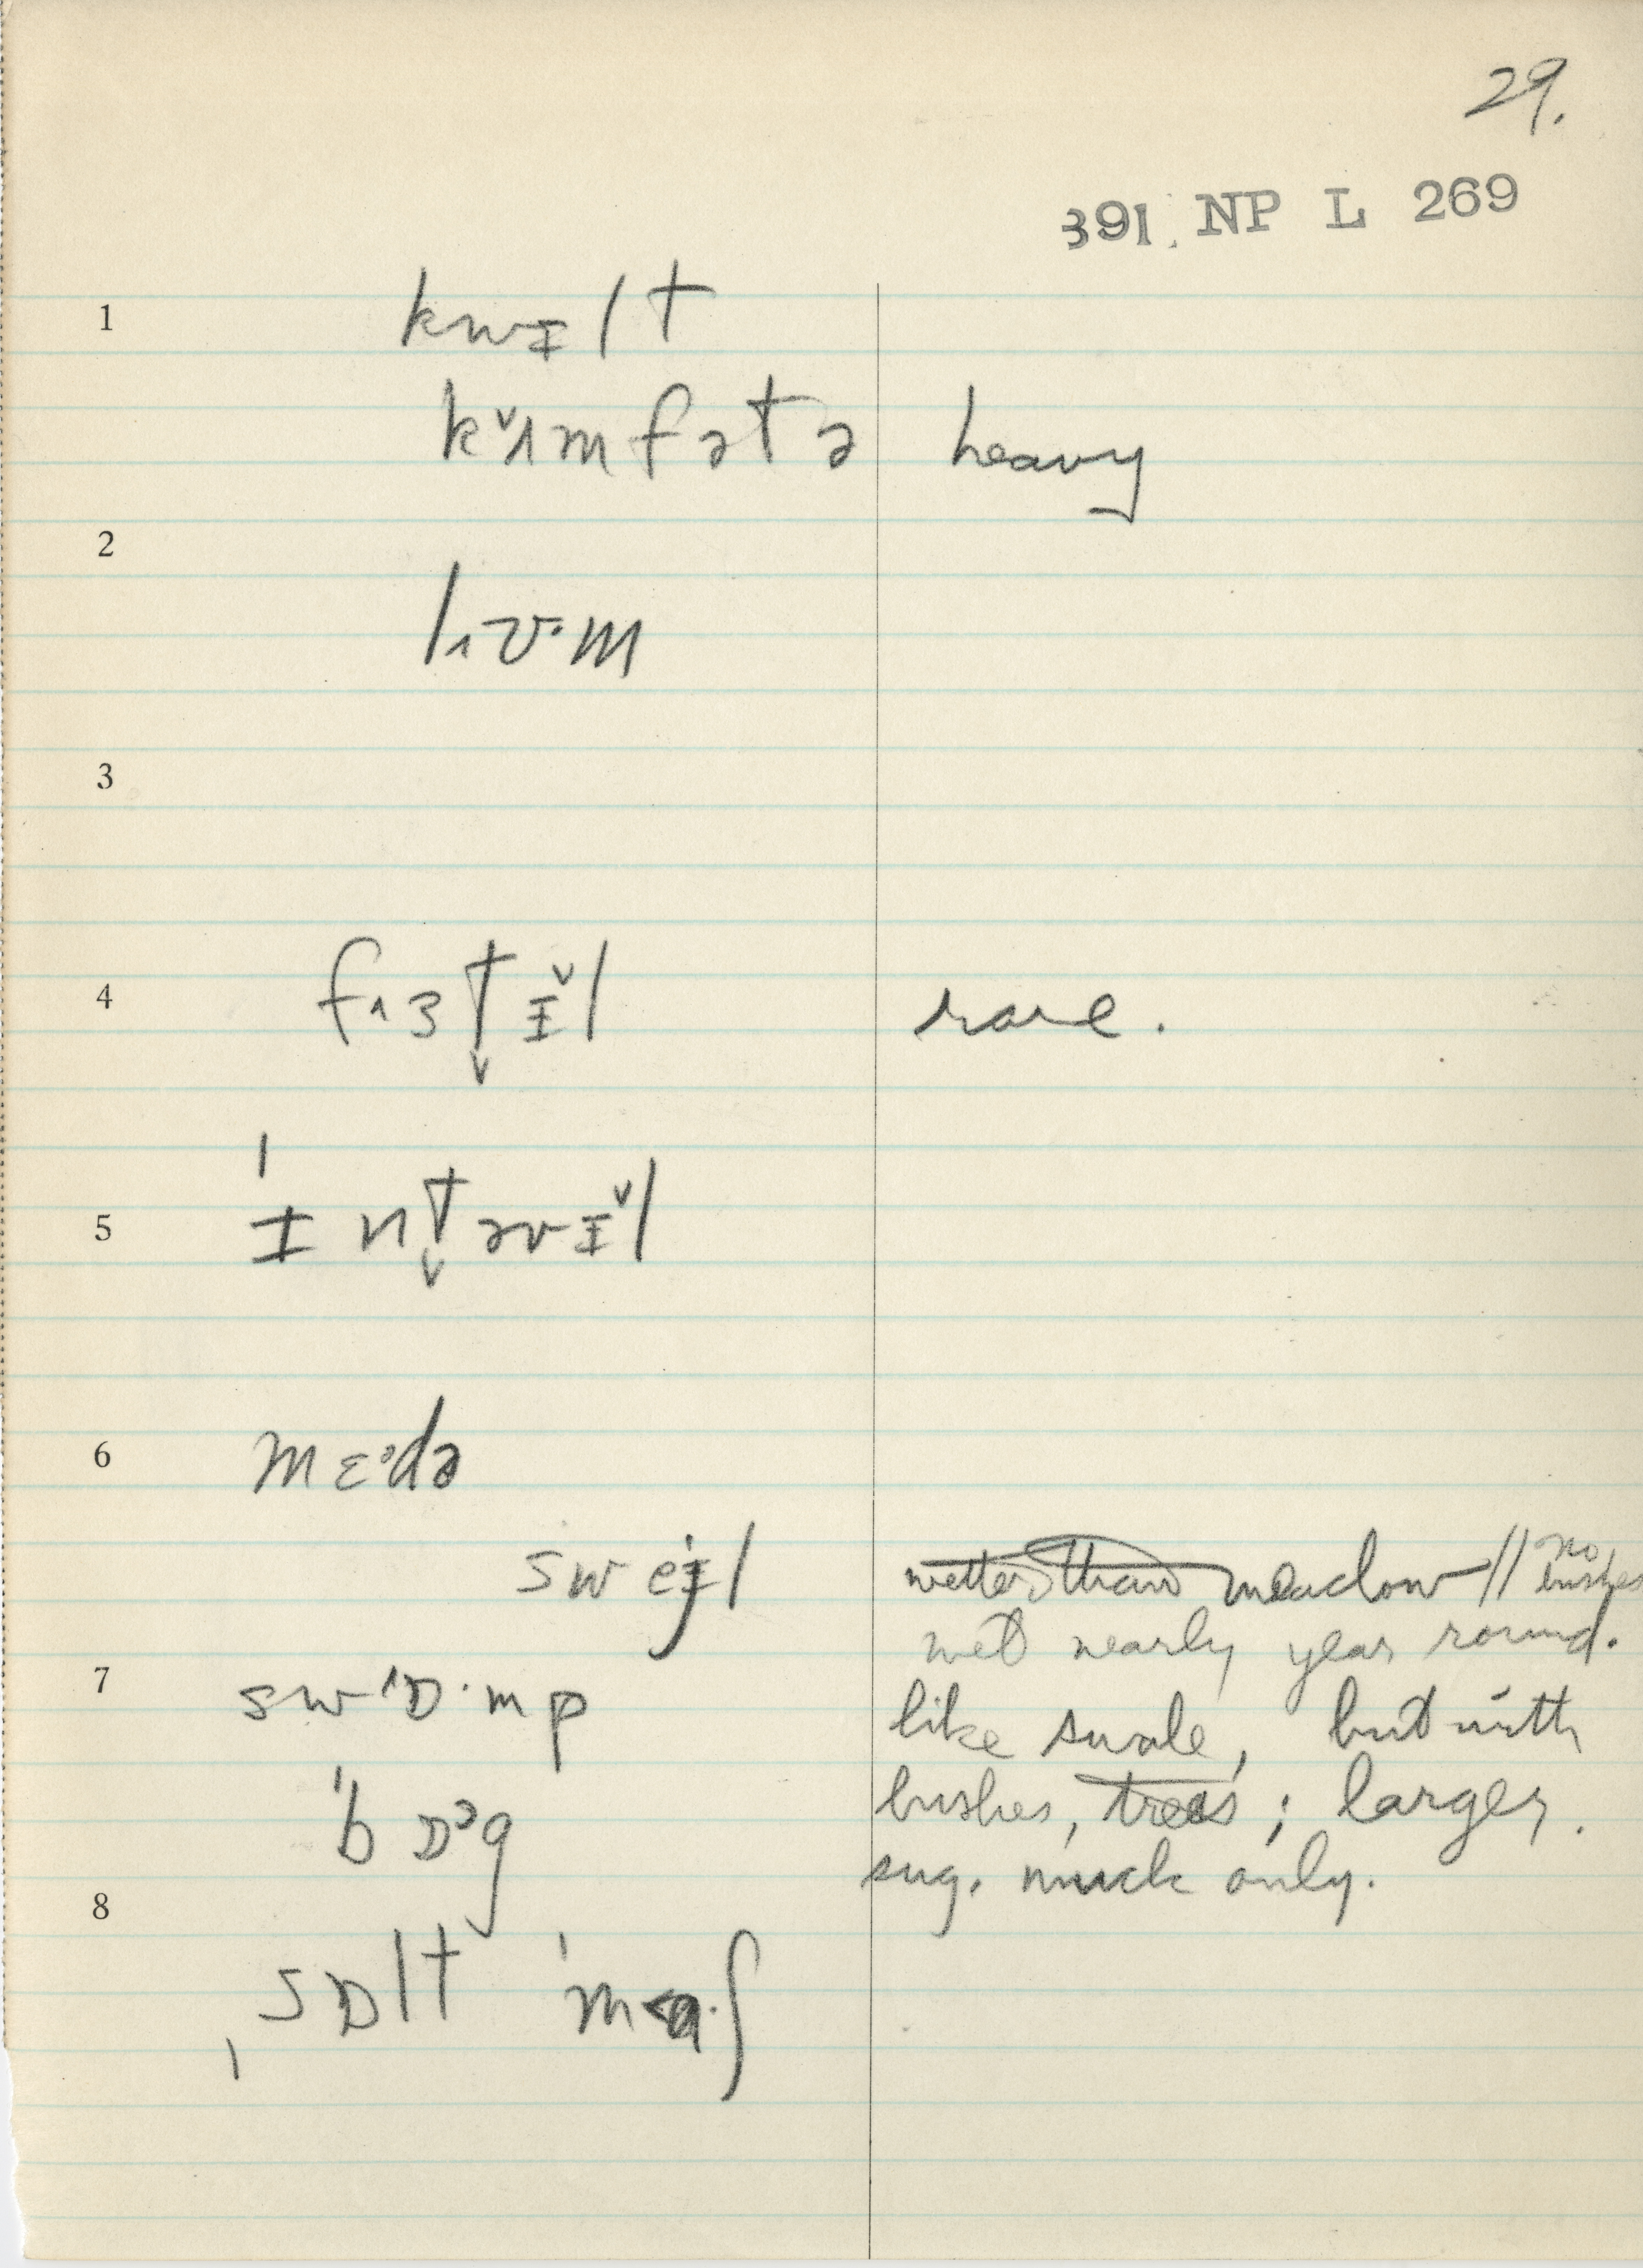 29.
391. NP L 269
1 kwɪlt
kˇʌmfətə heavy
2
lʌʊ·m
3
4 fʌɜt̬ɪˇl rare.
5 ˈɪnt̬əvɪˇl
6 mɛᵊdə
sweɪ̯l wetter than meadow // no bushes
wet nearly year round.
7 swˈɒ·mp like swale, but with
ˈbɒᵊg bushes, trees; larger.
8 sug. muck only.
ˌsɒlt ˈma·ʃ